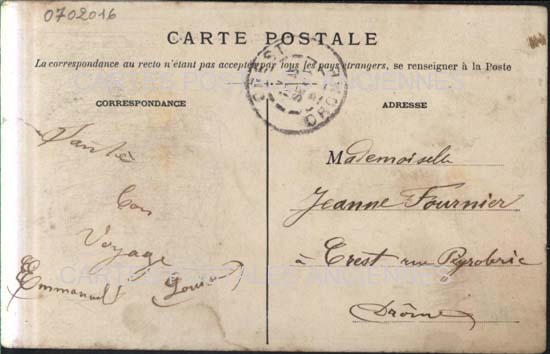 0702016
CARTE POSTALE
La correspondance au recto n'étant pas acceptée par tous les pays étrangers, se renseigner à la Poste
CARTES POSTALES ANCIENNES
CORRESPONDANCE
ADRESSE
CREST
DROME
Santé
Bon
Voyage
Emmanuel Louis
Mademoiselle
Jeanne Fournier
à Crest rue Peyrobrie
Drôme
CARTES POSTALES ANCIENNES